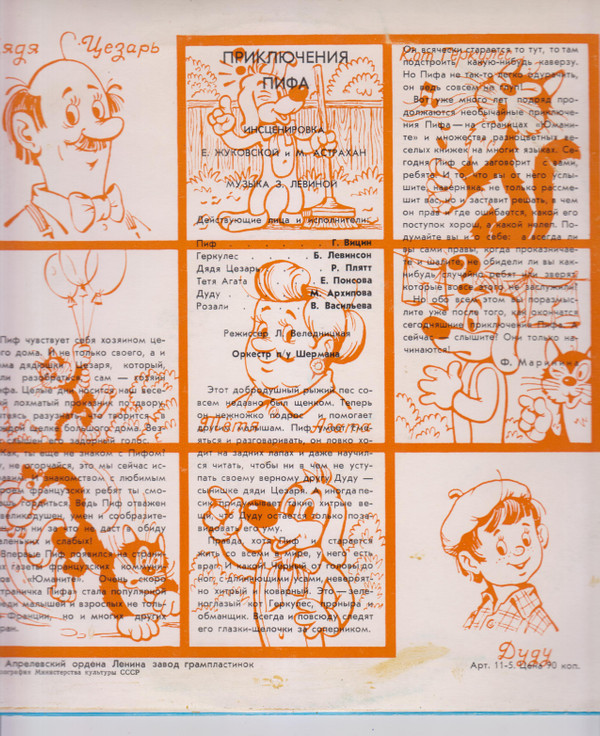 ЯДЯ ЦЕЗАРЬ
ПРИКЛЮЧЕНИЯ
ПИФА
ИНСЦЕНИРОВКА
Е. ЖУКОВСКОЙ и М. АСТРАХАН
МУЗЫКА З. ЛЕВИНОЙ
Действующие лица и исполнители:
Пиф . . . Г. Вицин
Геркулес . . . Б. Левинсон
Дядя Цезарь . . Р. Плятт
Тетя Агата . . Е. Понсова
Дуду . . . М. Архипова
Розали . . . В. Васильева
Режиссер Л. Велодницкая
Оркестр п/у Шермана
Пиф чувствует себя хозяином це-
го дома. И не только своего, а и
ма дядюшки Цезаря, который,
ли разобраться, сам — хозяин
ифа. Целые дни носится наш весе-
й лохматый проказник по двору,
таясь разузнать, что творится в
ждой щелке большого дома. Вез-
слышен его задорный голос.
Как, ты еще не знаком с Пифом!
у, не огорчайся, это мы сейчас ис-
авим знакомством с любимым
роем французских ребят ты смо-
шь гордиться. Ведь Пиф отважен
великодушен, умен и сообразите-
н и ни за что не даст в обиду
леньких и слабых!
Впервые Пиф появился на страни-
х газеты французских коммуни-
ов «Юманите». Очень скоро
траничка Пифа» стала популярной
еди малышей и взрослых не толь-
Франции, но и многих других
ран.
Этот добродушный рыжий пес со-
всем недавно был щенком. Теперь
он немножко подрос и помогает
другим малышам. Пиф умеет сме-
яться и разговаривать, он ловко хо-
дит на задних лапах и даже научил-
ся читать, чтобы ни в чем не усту-
пать своему верному другу Дуду —
сынишке дяди Цезаря. А иногда пе-
сик придумывает такие хитрые ве-
щи, что Дуду остается только поза-
видовать его уму.
Правда, хоть Пиф и старается
жить со всеми в мире, у него есть
враг. И какой! Черный от головы до
ног, с длинющими усами, невероят-
но хитрый и коварный. Это — зеле-
ноглазый кот Геркулес, проныра и
обманщик. Всегда и повсюду следят
его глазки-щелочки за соперником.
КОТ ГЕРКУЛЕС
Он всячески старается то тут, то там
подстроить какую-нибудь каверзу.
Но Пифа не так-то легко одурачить,
он ведь совсем не глуп!
Вот уже много лет подряд про-
должаются необычайные приключе-
ния Пифа — на страницах «Юмани-
те» и множества разноцветных ве-
селых книжек на многих языках. Се-
годня Пиф сам заговорит с вами,
ребята! И то, что вы от него услы-
шите, наверняка, не только рассме-
шит вас, но и заставит решать, в чем
он прав и где ошибается, какой его
поступок хорош, а какой нелеп. По-
думайте вы и о себе: а всегда ли
вы сами правы, когда проказничае-
те и шалите, не обидели ли вы как-
нибудь случайно ребят или зверят,
которые вовсе этого не заслужили!
Но обо всем этом вы поразмыс-
лите уже после того, как окончатся
сегодняшние приключения Пифа. А
сейчас — слышите! Они только на-
чинаются!
ДУДУ
Апрелевский ордена Ленина завод грампластинок
ография Министерства культуры СССР
Арт. 11-5. Цена 90 коп.